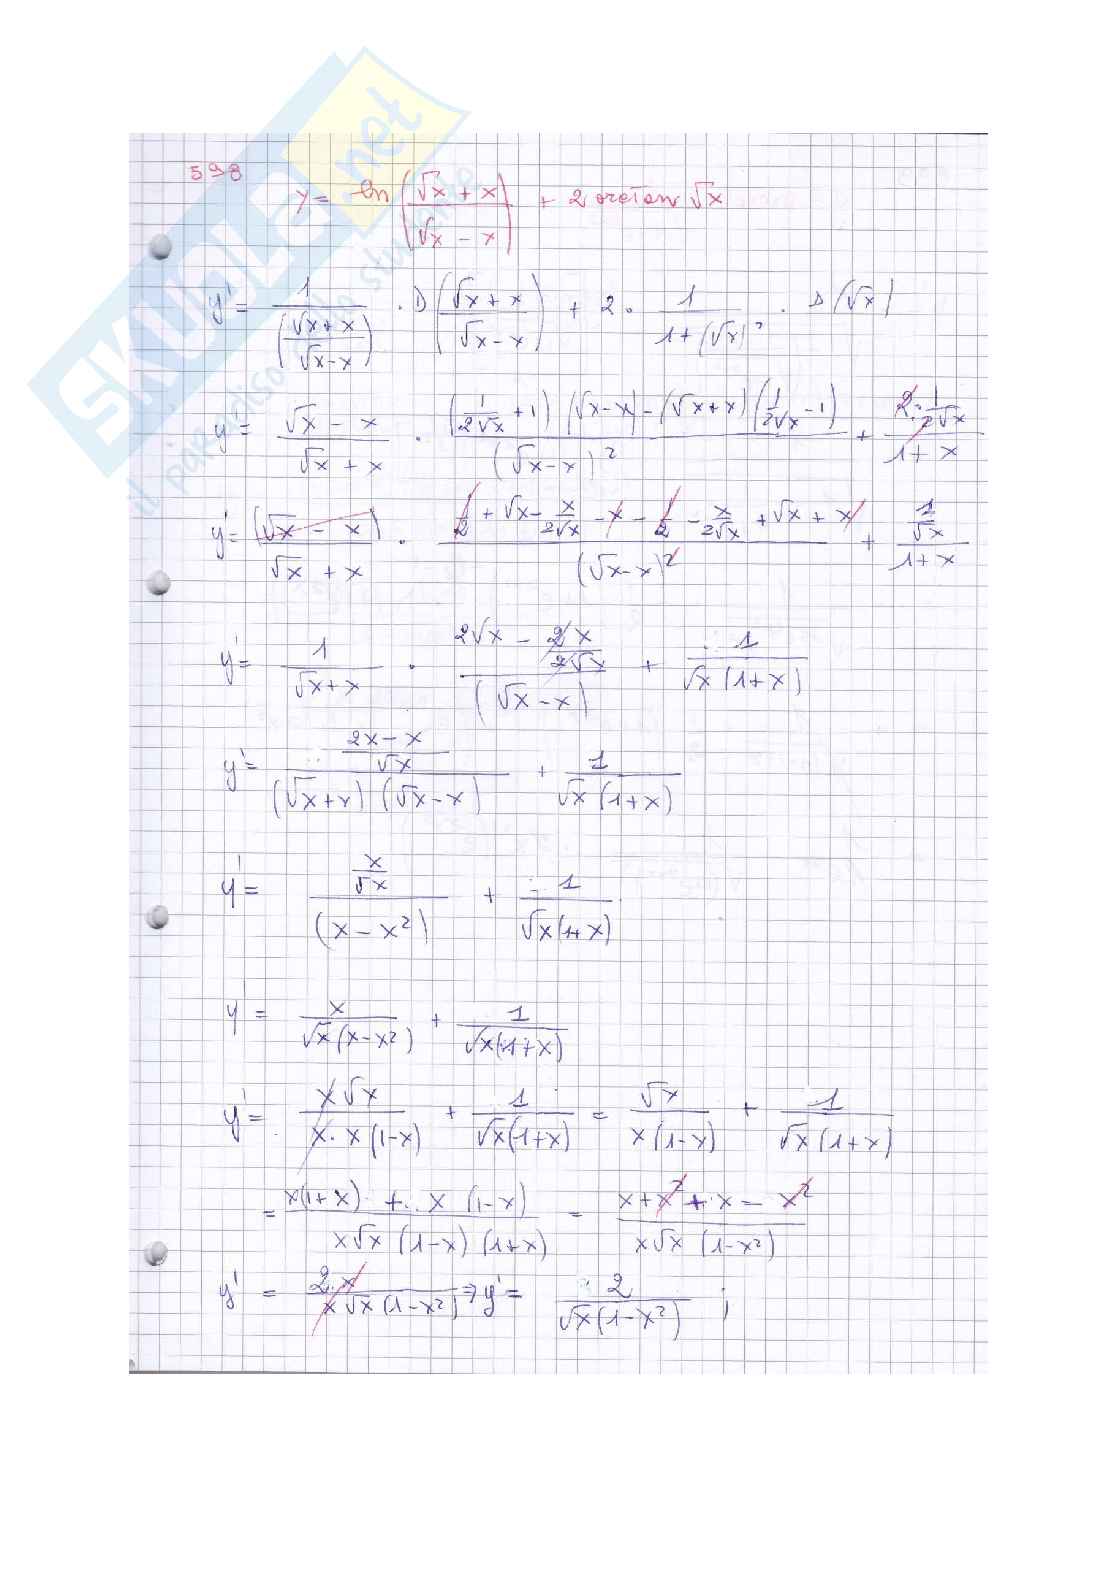 SKUOLA.net
il paradiso dello studente
598
y = ln ((√x + x)/(√x - x)) + 2 arctan √x
y' = 1/((√x + x)/(√x - x)) · D((√x + x)/(√x - x)) + 2 · 1/(1 + (√x)²) · D(√x)
y' = (√x - x)/(√x + x) · ((1/(2√x) + 1)(√x - x) - (√x + x)(1/(2√x) - 1))/(√x - x)² + (2 · 1/(2√x))/(1 + x)
y' = (√x - x)/(√x + x) · (1/2 + √x - x/(2√x) - x - 1/2 - x/(2√x) + √x + x)/(√x - x)² + (1/√x)/(1 + x)
y' = 1/(√x + x) · (2√x - 2x/(2√x))/(√x - x) + 1/(√x(1 + x))
y' = ((2x - x)/√x)/((√x + x)(√x - x)) + 1/(√x(1 + x))
y' = (x/√x)/(x - x²) + 1/(√x(1 + x))
y' = x/(√x(x - x²)) + 1/(√x(1 + x))
y' = x√x/(x · x(1 - x)) + 1/(√x(1 + x)) = √x/(x(1 - x)) + 1/(√x(1 + x))
= (x(1 + x) + x(1 - x))/(x√x(1 - x)(1 + x)) = (x + x² + x - x²)/(x√x(1 - x²))
y' = 2x/(x√x(1 - x²)) ⇒ y' = 2/(√x(1 - x²)) ;